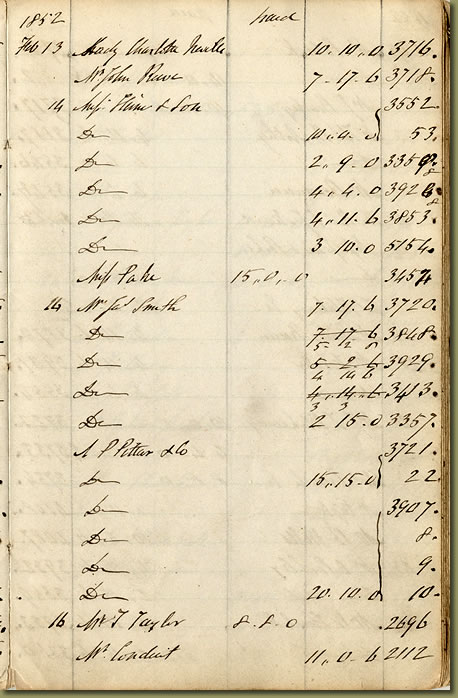 1852 hand
Feb 13 Lady Charlotte 10,, 10,, 0 3716.
Mr John Rowe 7 - 17 - 6 3718.
14 & Son 3552
Do 10,, 4,, 0 53.
Do 2,, 9 - 0 3359.
Do 4,, 4. 0 392 8
Do 4,, 11. 6 3853.
Do 3 10. 0 5154.
Miss Lake 15,, 0,, 0 3454
14 Mr Jas Smith 7. 17. 6 3720.
Do 7. 17. 6 3848.
5 2 8
Do 5 2 6 3929.
4 14 6
Do 4,, 14,, 6 3413.
3 3
Do 2 15. 0 3357.
P & Co 3721.
Do 15,, 15. 0 22
Do 3907.
Do 8.
Do 9.
Do 20. 10. 0 10.
16 Mr T Taylor 8. 8. 0 2696
Mr Conduit 11,, 0. 6 2112